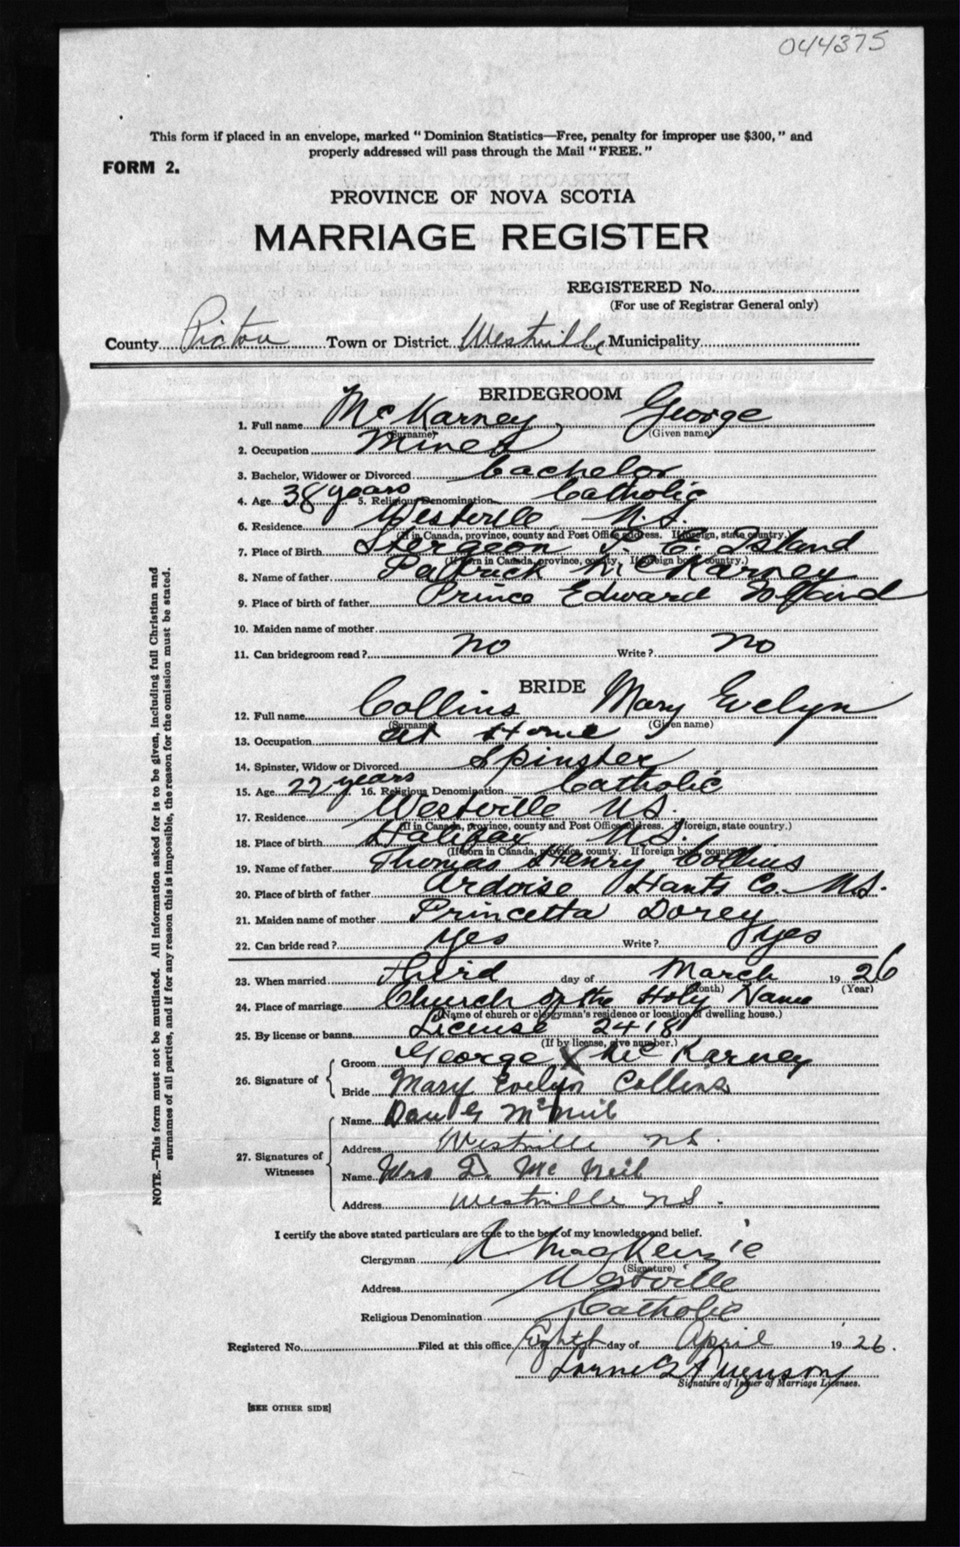 044375
This form if placed in an envelope, marked "Dominion Statistics—Free, penalty for improper use $300," and
properly addressed will pass through the Mail "FREE."
FORM 2.
PROVINCE OF NOVA SCOTIA
MARRIAGE REGISTER
REGISTERED No.
(For use of Registrar General only)
County Pictou Town or District Westville Municipality
BRIDEGROOM
1. Full name McKarney, George
(Surname) (Given name)
2. Occupation Miner
3. Bachelor, Widower or Divorced Bachelor
4. Age 38 years 5. Religious Denomination Catholic
6. Residence Westville N.S.
(If in Canada, province, county and Post Office address. If foreign, state country.)
7. Place of Birth Sturgeon P. E. Island
(If born in Canada, province, county. If foreign born country.)
8. Name of father Patrick McKarney
9. Place of birth of father Prince Edward Island
10. Maiden name of mother
11. Can bridegroom read? No Write? No
BRIDE
12. Full name Collins Mary Evelyn
(Surname) (Given name)
13. Occupation at Home
14. Spinster, Widow or Divorced Spinster
15. Age 22 years 16. Religious Denomination Catholic
17. Residence Westville N.S.
(If in Canada, province, county and Post Office address. If foreign, state country.)
18. Place of birth Halifax N.S.
(If born in Canada, province, county. If foreign born country.)
19. Name of father Thomas Henry Collins
20. Place of birth of father Ardoise Hants Co. N.S.
21. Maiden name of mother Princetta Dorey
22. Can bride read? yes Write? yes
23. When married third day of March 1926
(Month) (Year)
24. Place of marriage Church of the Holy Name
(Name of church or clergyman's residence or location of dwelling house.)
25. By license or banns License 2418
(If by license, give number.)
26. Signature of
Groom George X McKarney
Bride Mary Evelyn Collins
27. Signatures of Witnesses
Name Dan G McNeil
Address Westville N.S.
Name Mrs D. McNeil
Address Westville N.S.
I certify the above stated particulars are true to the best of my knowledge and belief.
Clergyman R MacKenzie
(Signature)
Address Westville
Religious Denomination Catholic
Registered No. Filed at this office Eighth day of April 1926.
Lorne G
Signature of Issuer of Marriage Licenses.
[SEE OTHER SIDE]
NOTE.—This form must not be mutilated. All information asked for is to be given, including full Christian and
surnames of all parties, and if for any reason this is impossible, the reason for the omission must be stated.